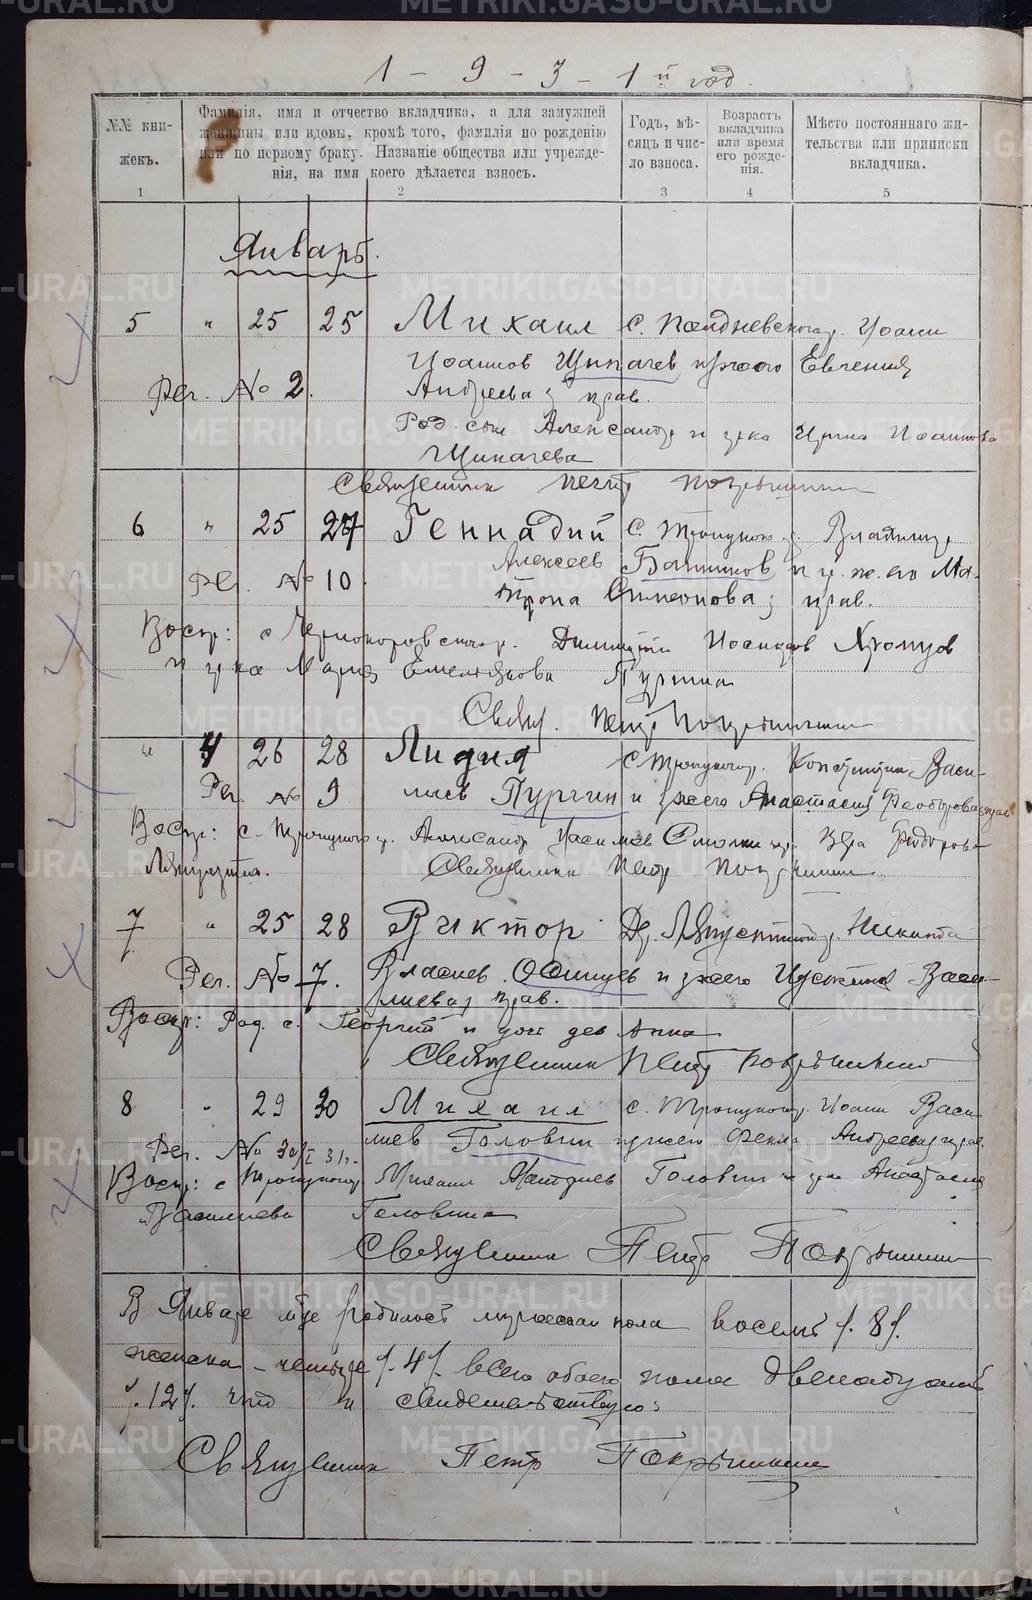 1 - 9 - 3 - 1й год.
№№ кни-
жекъ.
Фамилія, имя и отчество вкладчика, а для замужней
женщины или вдовы, кромѣ того, фамилія по рожденію
или по первому браку. Названіе общества или учрежде-
нія, на имя коего дѣлается взносъ.
Годъ, мѣ-
сяцъ и чис-
ло взноса.
Возрастъ
вкладчика
или время
его рожде-
нія.
Мѣсто постояннаго жи-
тельства или приписки
вкладчика.
1 2 3 4 5
Январь.
5 " 25 25 Михаил с. Полдневского Иоанн
Иоаннов Щипачев и Евгения
Рег. № 2. Андреева; прав.
Род. сын Александр и Ирина Иоаннова
Щипачева
Священник Петр Покрышкин
6 " 25 27 Геннадий с. Троицкого Владимир
Алексеев и ж. его Ма-
Рег. № 10. трона Симеонова; прав.
Воспр: с Черкокоровского гр. Димитрий Хромцов
и Мария Емельянова Пургина
Свящ. Петр Покрышкин
" 4 26 28 Лидия с Троицкого гр. Константин Васи-
Рег. № 9 лиев Пургин и жена его Анастасия Феодорова
Воспр: с. Троицкого гр. Александр Вера Феодорова
Священник Петр Покрышкин
7 " 25 28 Виктор Никита
Рег. № 7. Власиев Осинцев и жена его Васи-
лиева; прав.
Воспр: Род. с. Георгий и дев Анна
Священник Петр Покрышкин
8 " 29 30 Михаил с. Троицкого гр. Иоанн Васи-
лиев Головин и жена его Фекла Андреева; прав.
Рег. № 30/I 31г.
Воспр: с Троицкого Михаил Головин и Анастасия
Васильева Головина
Священник Петр Покрышкин
В Январе м-це родилось мужеска пола восемь /. 8/.
женска - четыре /. 4/. всего обоего пола двенадцать
/. 12/. что и свидетельствую:
Священник Петр Покрышкин
METRIKI.GASO-URAL.RU